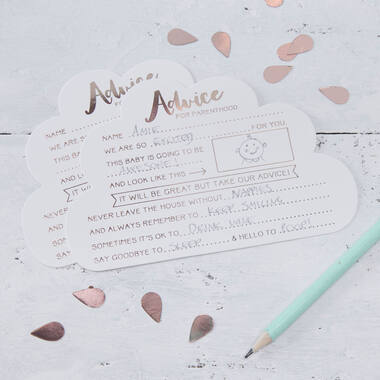 Advice
FOR
NAME
WE ARE SO
THIS BABY
AND LOOK
Advice
FOR PARENTHOOD
NAME AMIE
WE ARE SO EXCITED FOR YOU
THIS BABY IS GOING TO BE
AWESOME!
AND LOOK LIKE THIS
IT WILL BE GREAT BUT TAKE OUR ADVICE!
NEVER LEAVE THE HOUSE WITHOUT NAPPIES
AND ALWAYS REMEMBER TO KEEP SMILING
SOMETIMES IT'S OK TO DRINK WINE
SAY GOODBYE TO SLEEP & HELLO TO POOP!